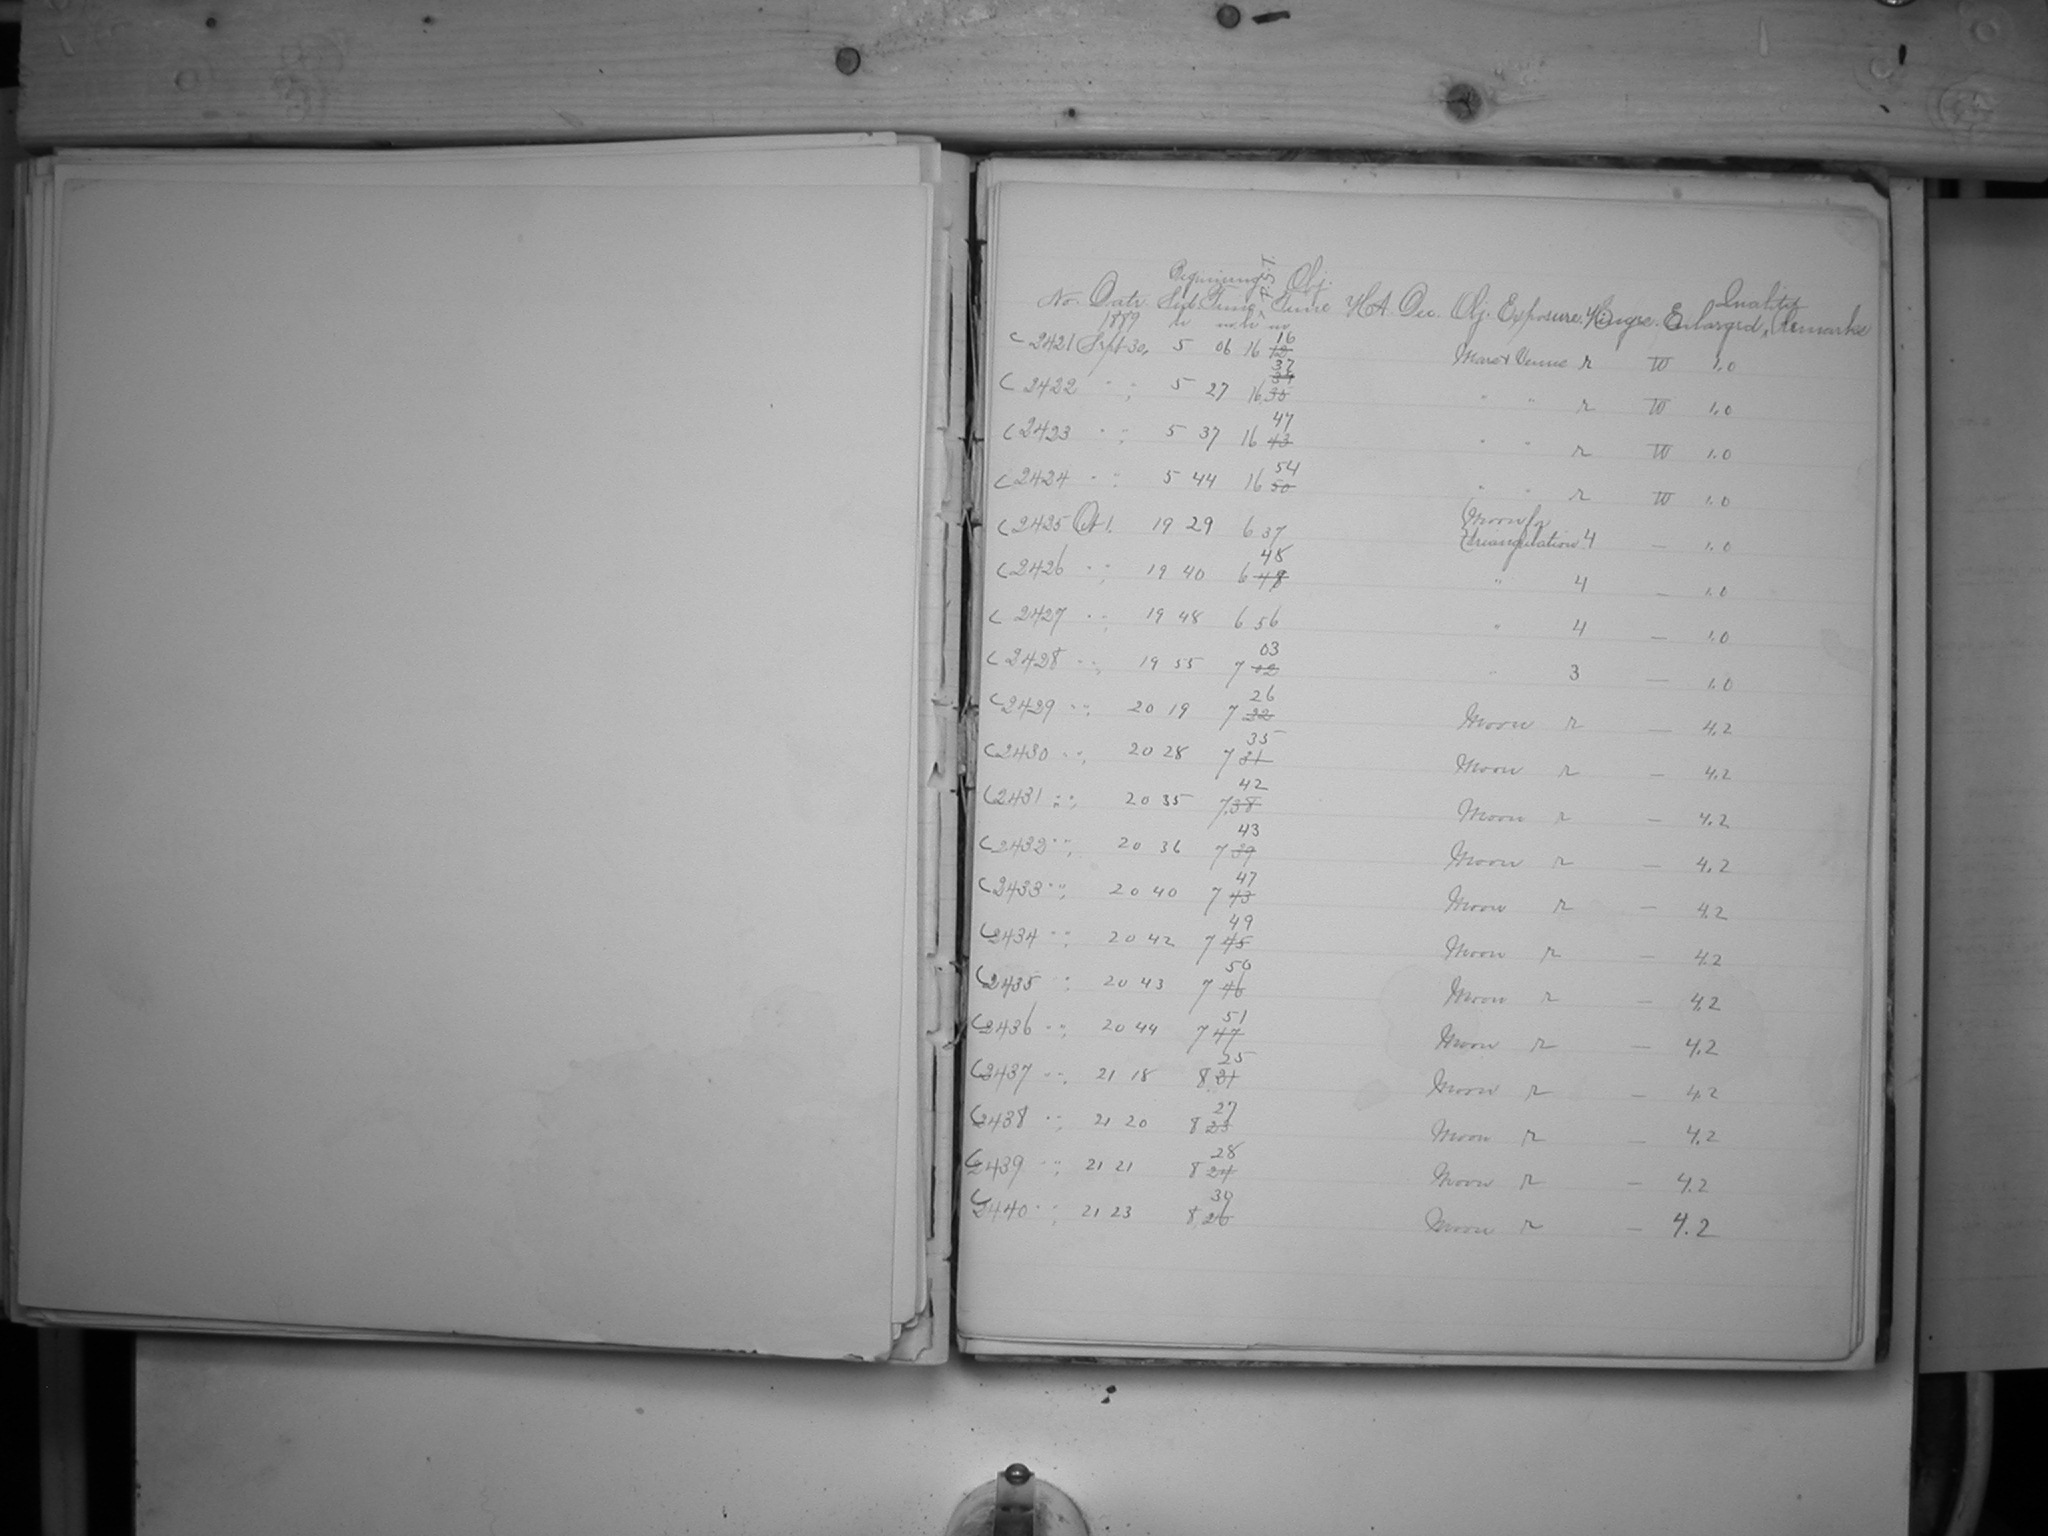 Beginning P.S.T. Obj. Quality
No. Date Sid. Time, Time H.A. Dec. Obj. Exposure. Hinge. Enlarged, Remarks
1889 h m h m
16
C 2421 Sept 30, 5 06 16 12 Mars & Venus r W 1.0
37
C 2422 " " 5 27 16 35 " " r W 1.0
47
C 2423 " " 5 37 16 43 " " r W 1.0
54
C 2424 " " 5 44 16 50 " " r W 1.0
C 2425 Oct 1. 19 29 6 37 Moon for
triangulation 4 — 1.0
48
C 2426 " " 19 40 6 49 " 4 — 1.0
C 2427 " " 19 48 6 56 " 4 — 1.0
03
C 2428 " " 19 55 7 02 " 3 — 1.0
26
C 2429 " " 20 19 7 22 Moon r — 4.2
35
C 2430 " " 20 28 7 31 Moon r — 4.2
42
C 2431 " " 20 35 7 38 Moon r — 4.2
43
C 2432 " " 20 36 7 39 Moon r — 4.2
47
C 2433 " " 20 40 7 43 Moon r — 4.2
49
C 2434 " " 20 42 7 45 Moon r — 4.2
50
C 2435 " " 20 43 7 46 Moon r — 4.2
51
C 2436 " " 20 44 7 47 Moon r — 4.2
25
C 2437 " " 21 18 8 21 Moon r — 4.2
27
C 2438 " " 21 20 8 23 Moon r — 4.2
28
C 2439 " " 21 21 8 24 Moon r — 4.2
30
C 2440 " " 21 23 8 26 Moon r — 4.2